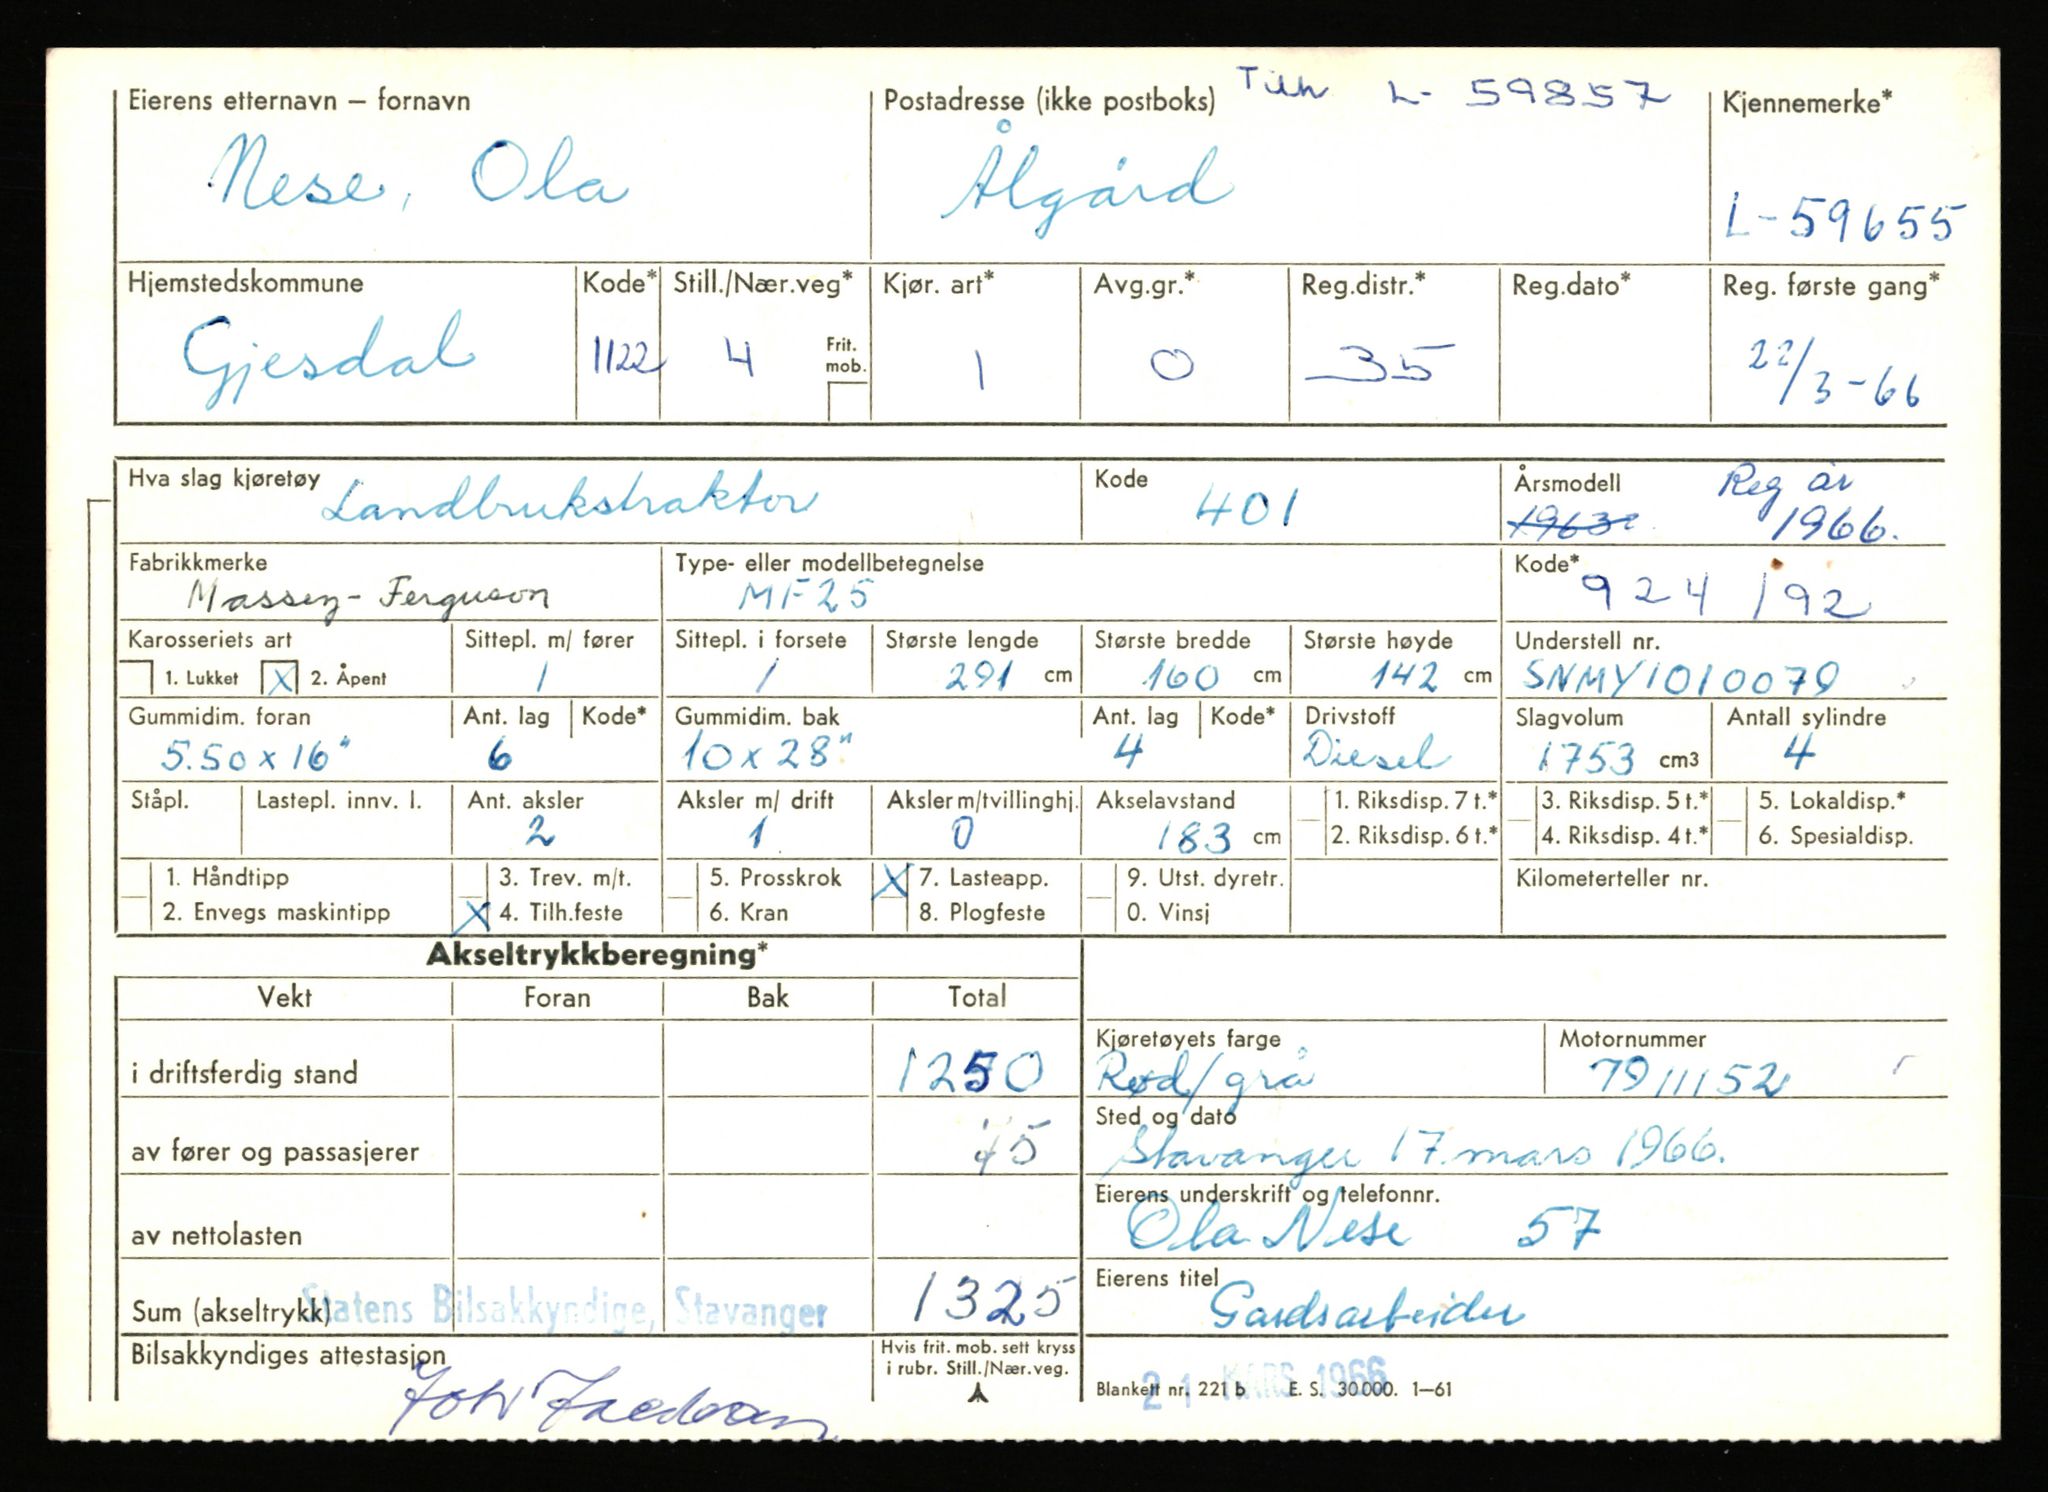 Eierens etternavn – fornavn Postadresse (ikke postboks) Tilh L- 59857 Kjennemerke*
Nese, Ola Ålgård L-59655
Hjemstedskommune Kode* Still./Nær.veg* Kjør. art* Avg.gr.* Reg.distr.* Reg.dato* Reg. første gang*
Gjesdal 1122 4 Frit. mob. 1 0 35 22/3-66
Hva slag kjøretøy Landbrukstraktor Kode 401 Årsmodell 1963 Reg år 1966.
Fabrikkmerke Type- eller modellbetegnelse Kode*
Massey-Ferguson MF25 924 192
Karosseriets art Sittepl. m/ fører Sittepl. i forsete Største lengde Største bredde Største høyde Understell nr.
1. Lukket X 2. Åpent 1 1 291 cm 160 cm 142 cm SNMY1010079
Gummidim. foran Ant. lag Kode* Gummidim. bak Ant. lag Kode* Drivstoff Slagvolum Antall sylindre
5.50 x 16" 6 10 x 28" 4 Diesel 1753 cm3 4
Ståpl. Lastepl. innv. l. Ant. aksler Aksler m/ drift Aksler m/tvillinghj. Akselavstand 1. Riksdisp. 7 t.* 3. Riksdisp. 5 t.* 5. Lokaldisp.*
2 1 0 183 cm 2. Riksdisp. 6 t.* 4. Riksdisp. 4 t.* 6. Spesialdisp.
1. Håndtipp 3. Trev. m/t. 5. Prosskrok X 7. Lasteapp. 9. Utst. dyretr. Kilometerteller nr.
2. Envegs maskintipp X 4. Tilh.feste 6. Kran 8. Plogfeste 0. Vinsj
Akseltrykkberegning*
Vekt Foran Bak Total
i driftsferdig stand 1250
Kjøretøyets farge Motornummer
Rød/grå 79111152
av fører og passasjerer 75
Sted og dato
Stavanger 17. mars 1966.
av nettolasten
Eierens underskrift og telefonnr.
Ola Nese 57
Sum (akseltrykk) 1325
Statens Bilsakkyndige, Stavanger
Eierens titel
Gardsarbeider
Bilsakkyndiges attestasjon
Hvis frit. mob. sett kryss
i rubr. Still./Nær.veg.
21 MARS 1966
Blankett nr. 221 b E. S. 30 000. 1–61